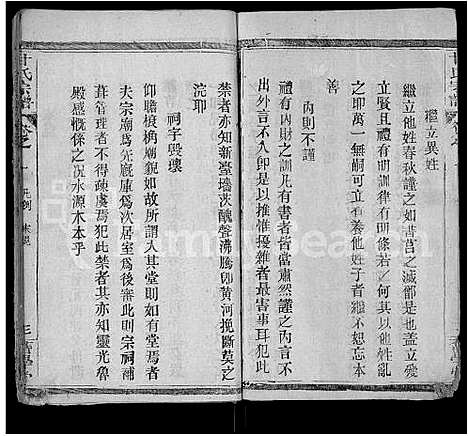 甘氏宗譜
繼立異姓
繼立他姓春秋謹之如書莒之滅鄫是也蓋立愛
立賢且有明訓律有明條若何其以他姓亂
之卽萬一無嗣可立者養他姓子者繼不恕忘本
善
內則不謹
禮有內財之訓凡有書者皆當肅然謹之內言不
出外言不入卽是以推惟擾雜者最害事耳犯此
禁者亦知新臺墻茨醜聲沸騰卽黃河挽斷莫之
浣耶
祠宇毀壞
仰瞻榱桷廟貌如故所謂入其堂則如有堂焉者
夫宗廟爲先廐庫爲次居室爲後審此則宗祠補
葺管理者不得疎虞焉犯此禁者其亦知靈光魯
殿感慨係之況水源木本乎
甘氏宗譜